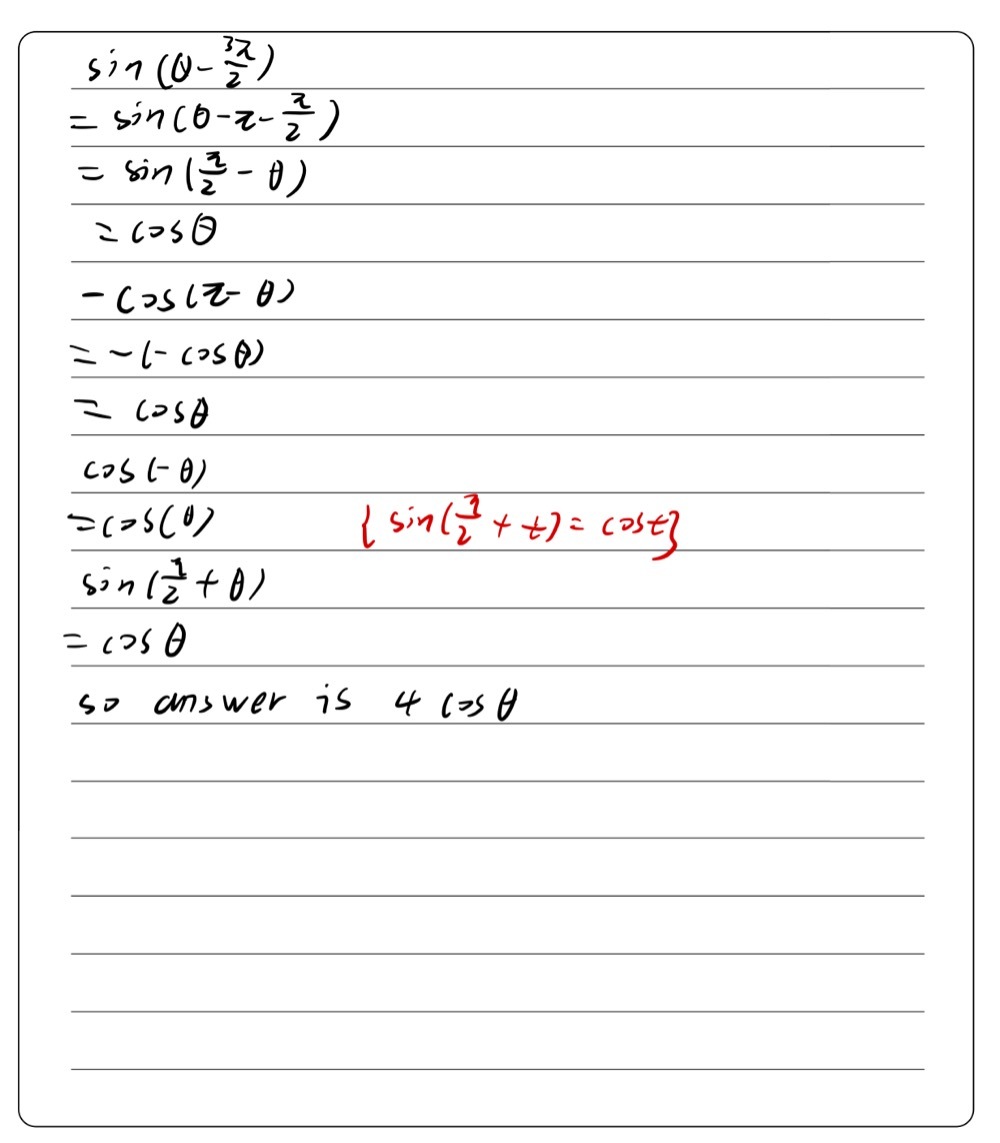 sin(θ-3π/2)
= sin(θ-π-π/2)
= sin(π/2-θ)
= cosθ
-cos(π-θ)
= -(-cosθ)
= cosθ
cos(-θ)
=cos(θ) {sin(π/2+t)=cost}
sin(π/2+θ)
= cosθ
so answer is 4cosθ